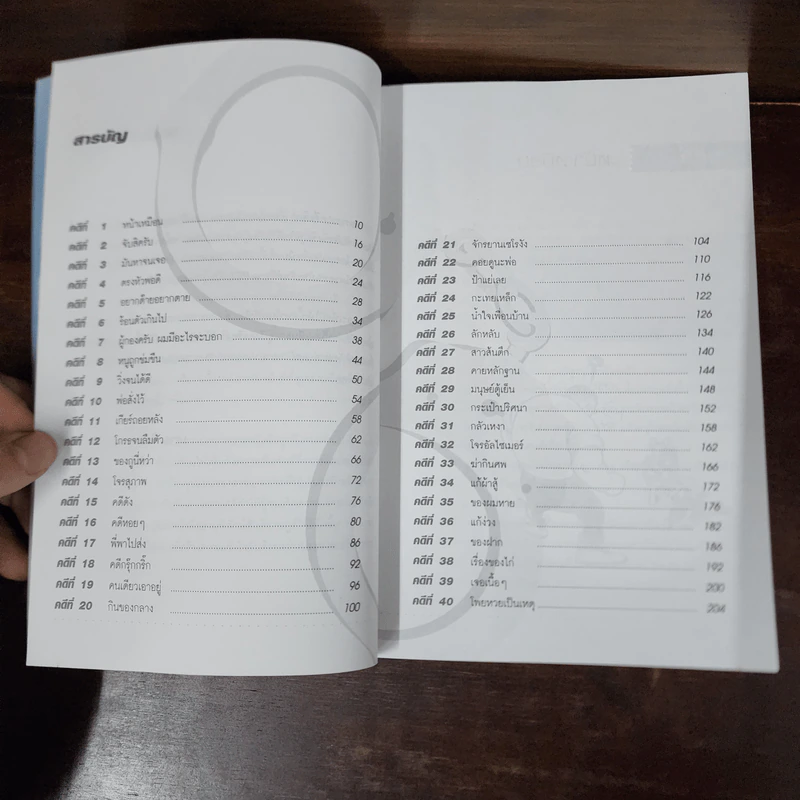 สารบัญ
คดีที่ 1 หน้าเหมือน 10
คดีที่ 2 จับสิครับ 16
คดีที่ 3 มันหาจนเจอ 20
คดีที่ 4 ตรงหัวพอดี 24
คดีที่ 5 อยากด้ายอยากตาย 28
คดีที่ 6 ร้อนตัวเกินไป 34
คดีที่ 7 ผู้กองครับ ผมมีอะไรจะบอก 38
คดีที่ 8 หนูถูกข่มขืน 44
คดีที่ 9 วิ่งจนได้ดี 50
คดีที่ 10 พ่อสั่งไว้ 54
คดีที่ 11 เกียร์ถอยหลัง 58
คดีที่ 12 โกรธจนลืมตัว 62
คดีที่ 13 ของกูนี่หว่า 66
คดีที่ 14 โจรสุภาพ 72
คดีที่ 15 คดีดัง 76
คดีที่ 16 คดีหอยๆ 80
คดีที่ 17 พี่พาไปส่ง 86
คดีที่ 18 คดีกรุ๊กกริ๊ก 92
คดีที่ 19 คนเดียวเอาอยู่ 96
คดีที่ 20 กินของกลาง 100
คดีที่ 21 จักรยานเซโรงัง 104
คดีที่ 22 คอยดูนะพ่อ 110
คดีที่ 23 ป้าแย่เลย 116
คดีที่ 24 กะเทยเหล็ก 122
คดีที่ 25 น้ำใจเพื่อนบ้าน 126
คดีที่ 26 ลักหลับ 134
คดีที่ 27 สาวส้นตึก 140
คดีที่ 28 คายหลักฐาน 144
คดีที่ 29 มนุษย์ตู้เย็น 148
คดีที่ 30 กระเป๋าปริศนา 152
คดีที่ 31 กลัวเหงา 158
คดีที่ 32 โจรอัลไซเมอร์ 162
คดีที่ 33 ฆ่ากินศพ 166
คดีที่ 34 แก้ผ้าสู้ 172
คดีที่ 35 ของผมหาย 176
คดีที่ 36 แก้ง่วง 182
คดีที่ 37 ของฝาก 186
คดีที่ 38 เรื่องของไก่ 192
คดีที่ 39 เจอเนื้อๆ 200
คดีที่ 40 โพยหวยเป็นเหตุ 204